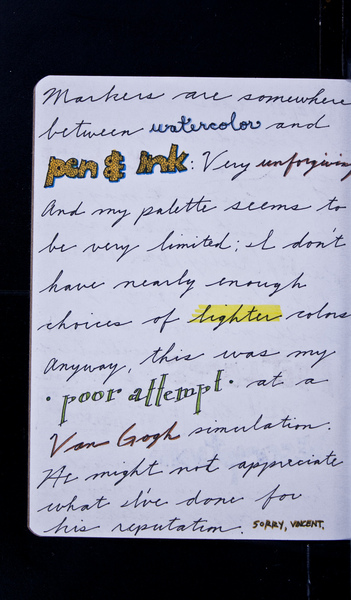 Markers are somewhere
between watercolor and
pen & ink: Very unforgiving
And my palette seems to
be very limited; I don't
have nearly enough
choices of lighter colors
Anyway, this was my
• poor attempt • at a
Van Gogh simulation.
He might not appreciate
what I've done for
his reputation. SORRY, VINCENT.